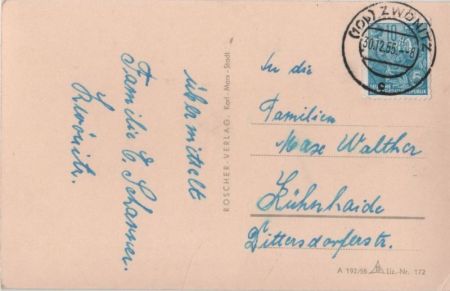 übermittelt
Familie E. Schanner.
Zwönitz.
ROSCHER-VERLAG, Karl-Marx-Stadt
(10b) ZWÖNITZ
30.12.55
10
In die
Familien
Maxe Walther
Kühnhaide
Dittersdorferstr.
A 192/55 Liz.-Nr. 172